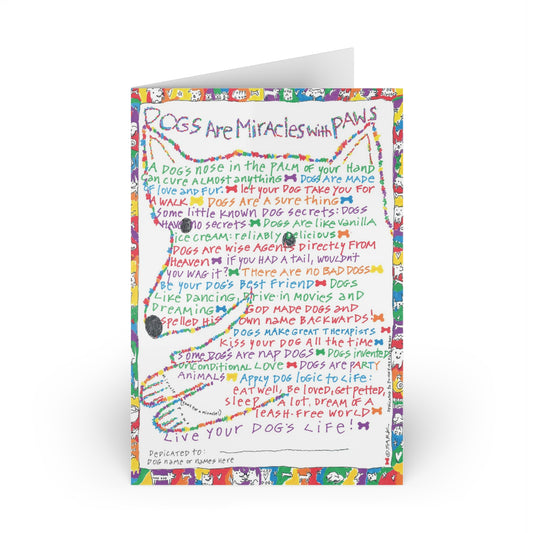 DOGS Are Miracles with PAWS
A DOG'S NOSE IN THE PALM OF YOUR HAND
CAN CURE ALMOST ANYTHING DOGS ARE MADE
OF LOVE AND FUR. LET YOUR DOG TAKE YOU FOR
A WALK DOGS ARE A SURE THING
SOME LITTLE KNOWN DOG SECRETS: DOGS
HAVE NO SECRETS DOGS ARE LIKE VANILLA
ICE CREAM: RELIABLY DELICIOUS
DOGS ARE WISE AGENTS DIRECTLY FROM
HEAVEN IF YOU HAD A TAIL, WOULDN'T
YOU WAG IT? THERE ARE NO BAD DOGS
BE YOUR DOG'S BEST FRIEND DOGS
LIKE DANCING, DRIVE-IN MOVIES AND
DREAMING GOD MADE DOGS AND
SPELLED HIS OWN NAME BACKWARDS!
DOGS MAKE GREAT THERAPISTS
KISS YOUR DOG ALL THE TIME
SOME DOGS ARE NAP DOGS DOGS INVENTED
UNCONDITIONAL LOVE DOGS ARE PARTY
ANIMALS APPLY DOG LOGIC TO LIFE:
EAT WELL, BE LOVED, GET PETTED
SLEEP A LOT, DREAM OF A
LEASH-FREE WORLD
LIVE YOUR DOG'S LIFE!
DEDICATED TO:
DOG NAME OR NAMES HERE
© SARK